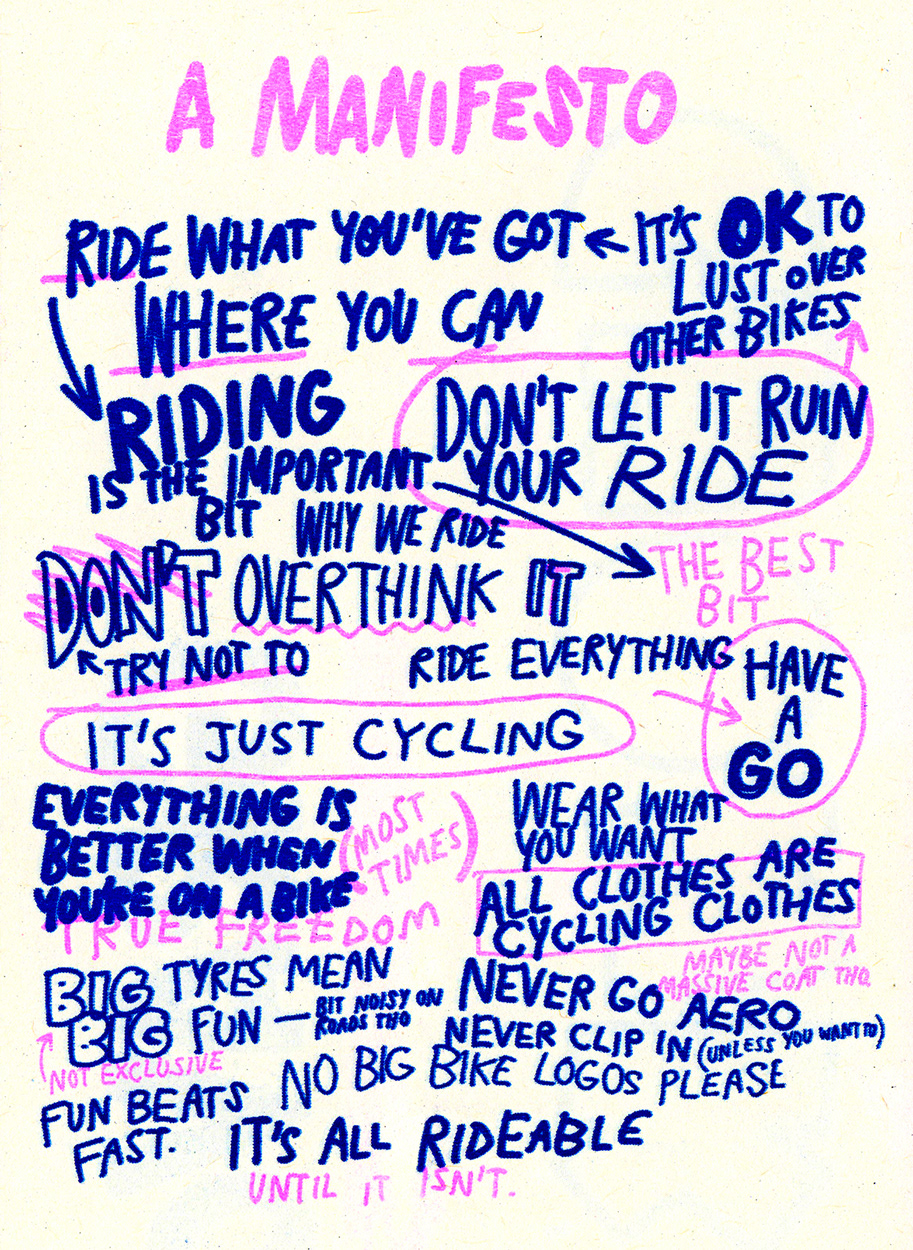 A MANIFESTO
RIDE WHAT YOU'VE GOT ← IT'S OK TO
LUST OVER
OTHER BIKES
WHERE YOU CAN
DON'T LET IT RUIN
YOUR RIDE
RIDING
IS THE IMPORTANT
BIT WHY WE RIDE
THE BEST
BIT
DON'T OVERTHINK IT
TRY NOT TO
RIDE EVERYTHING
HAVE
A
GO
IT'S JUST CYCLING
EVERYTHING IS
BETTER WHEN
YOU'RE ON A BIKE
(MOST
TIMES)
TRUE FREEDOM
WEAR WHAT
YOU WANT
ALL CLOTHES ARE
CYCLING CLOTHES
MAYBE NOT A
MASSIVE COAT THO
BIG TYRES MEAN
BIG FUN — BIT NOISY ON
ROADS THO
NOT EXCLUSIVE
NEVER GO AERO
NEVER CLIP IN (UNLESS YOU WANT TO)
NO BIG BIKE LOGOS PLEASE
FUN BEATS
FAST.
IT'S ALL RIDEABLE
UNTIL IT ISN'T.